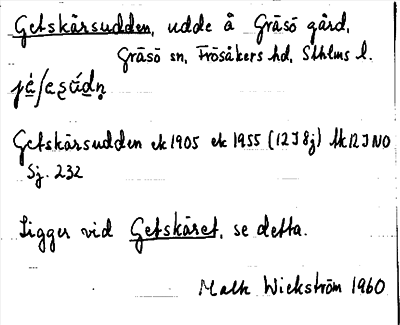 Getskärsudden, udde å Gräsö gård,
Gräsö sn, Frösåkers hd, Sthlms l.
Getskärsudden ek 1905 ek 1955 (12I 8j) tk 12 I NO
Sj. 232
Ligger vid Getskäret, se detta.
Wickström 1960